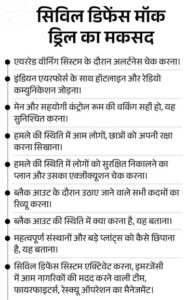 सिविल डिफेंस मॉक
ड्रिल का मकसद
● एयररेड वॉर्निंग सिस्टम के दौरान अलर्टनेस चेक करना।
● इंडियन एयरफोर्स के साथ हॉटलाइन और रेडियो
कम्युनिकेशन जोड़ना।
● मेन और सहयोगी कंट्रोल रूम की वर्किंग सही हो, यह
सुनिश्चित करना।
● हमले की स्थिति में आम लोगों, छात्रों को अपनी रक्षा
करना सिखाना।
● हमले की स्थिति में लोगों को सुरक्षित निकालने का
प्लान और उसका एक्जीक्यूशन चेक करना।
● ब्लैक आउट के दौरान उठाए जाने वाले सभी कदमों का
रिव्यू करना।
● ब्लैक आउट की स्थिति में क्या करना है, यह बताना।
● महत्वपूर्ण संस्थानों और बड़े प्लांट्स को कैसे छिपाना
है, यह बताना।
● सिविल डिफेंस सिस्टम एक्टिवेट करना, इमरजेंसी
में आम नागरिकों की मदद करने वाली टीम,
फायरफाइटर्स, रेस्क्यू ऑपरेशन का मैनेजमेंट।